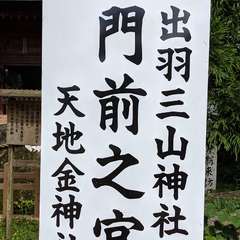 出羽三山神社
門前之宮
天地金神社